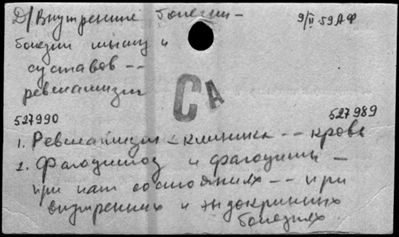 Д/Внутренние болезни – 9/II 59 АФ
болезни мышц и
суставов --
ревматизм
СА
527990 527989
1. Ревматизм – клиника -- кровь
2. Фагоцитоз и фагоциты –
при пат состояниях -- при
внутренних и эндокринных
болезнях